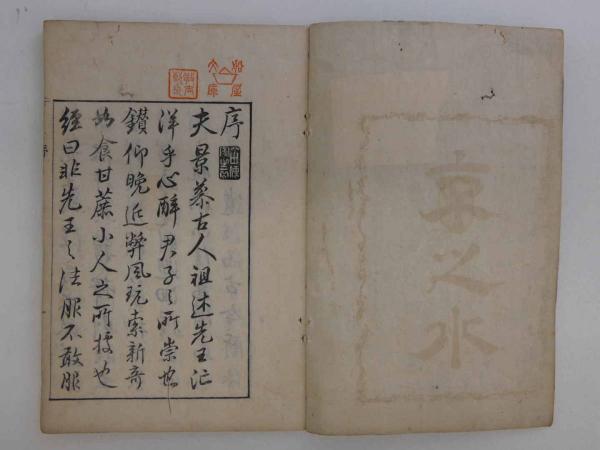 京之水
序
夫景慕古人祖述先王茫
洋乎心醉君子之所崇也
鑽仰晩近弊風玩索新奇
如食甘蔗小人之所擾也
經曰非先王之法服不敢服
船屋
文庫